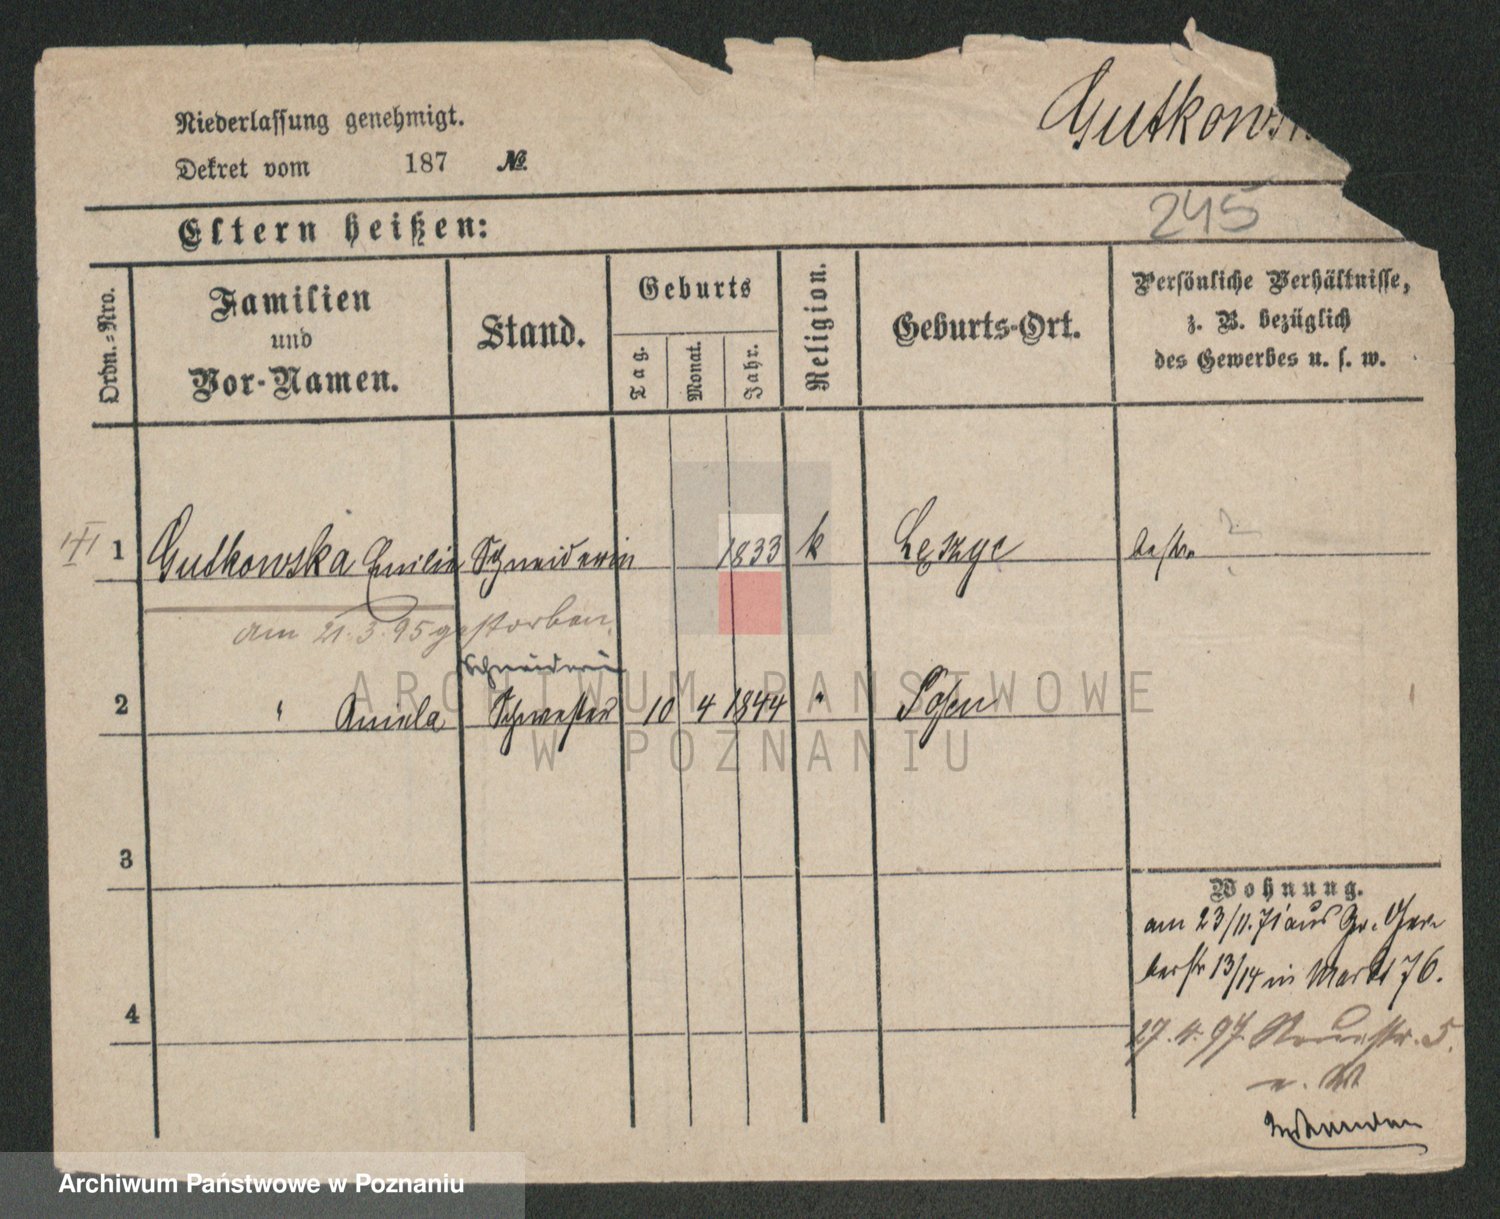 Niederlassung genehmigt.
Gutkowsk
Dekret vom 187 №
245
Eltern heißen:
Ordn.-Nro.
Familien
und
Vor-Namen.
Stand.
Geburts
Tag.
Monat.
Jahr.
Religion.
Geburts-Ort.
Persönliche Verhältnisse,
z. B. bezüglich
des Gewerbes u. s. w.
1 Gutkowska Emilie Schneiderin 1833 k
am 21.3.95 gestorben
Schneiderin
2 " Aniela Schwester 10 4 1844 " Posen
3
4
Wohnung.
am 23/11.71 aus Gr. Ger
berstr 13/14 in Markt 76.
27.4.97. str. 5.
ARCHIWUM PAŃSTWOWE
W POZNANIU
Archiwum Państwowe w Poznaniu